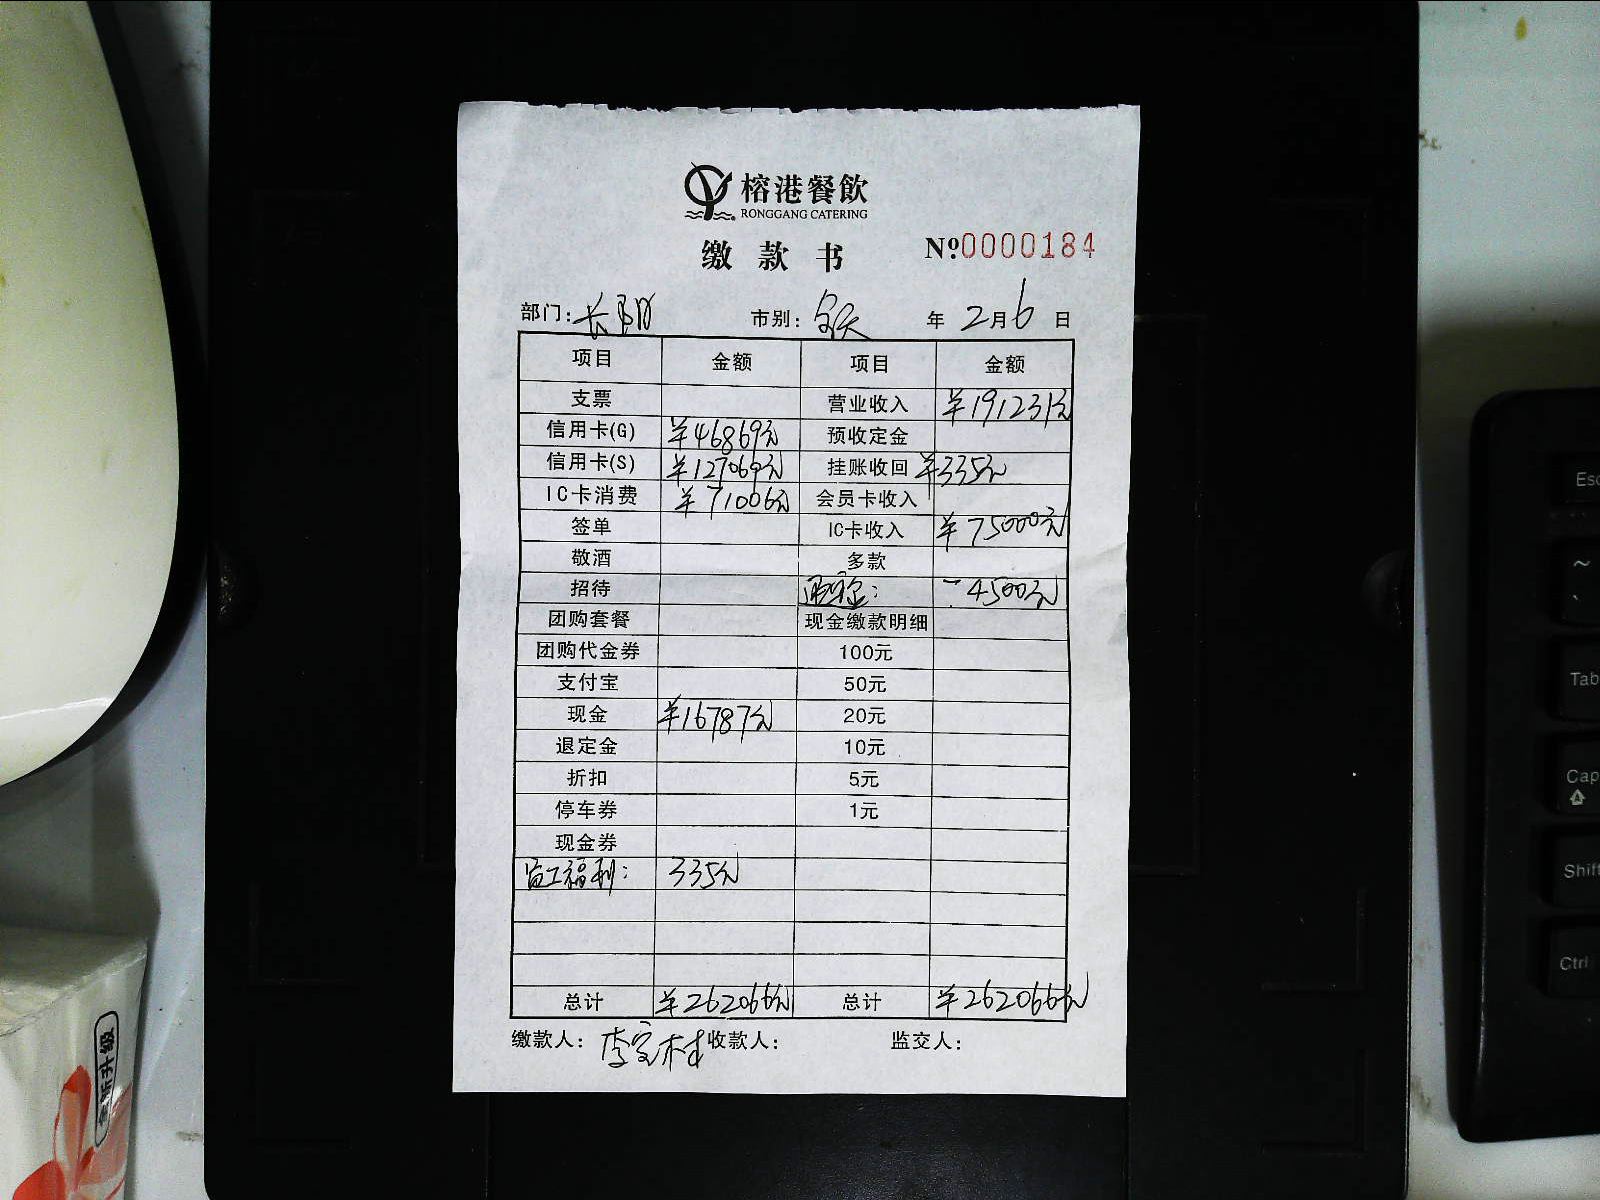 榕港餐飲
RONGGANG CATERING
缴款书 Nº:0000184
部门:长阳 市别:全天 年2月6日
项目 金额 项目 金额
支票 营业收入 ¥191231元
信用卡(G) ¥46869元 预收定金
信用卡(S) ¥127069元 挂账收回 ¥335元
IC卡消费 ¥71006元 会员卡收入
签单 IC卡收入 ¥75000元
敬酒 多款
招待 退订金: -4500元
团购套餐 现金缴款明细
团购代金券 100元
支付宝 50元
现金 ¥16787元 20元
退定金 10元
折扣 5元
停车券 1元
现金券
员工福利: 335元
总计 ¥262066元 总计 ¥262066元
缴款人: 收款人: 监交人:
Esc
~
Tab
Cap
Shift
Ctrl